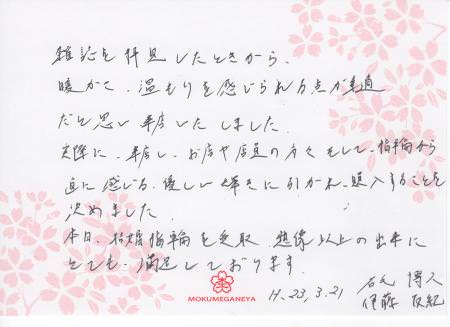 雑誌を拝見したときから、
暖かく、温もりを感じられる点が素適
だと思い来店いたしました。
実際に、来店し、お店や店員の方々をして、指輪から
直に感じる、優しい輝きに引かれ、購入することを
決めました。
本日、結婚指輪を受取、想像以上の出来に
とても、満足しております。
H.23,3.21
博久
伊藤 友紀
MOKUMEGANEYA